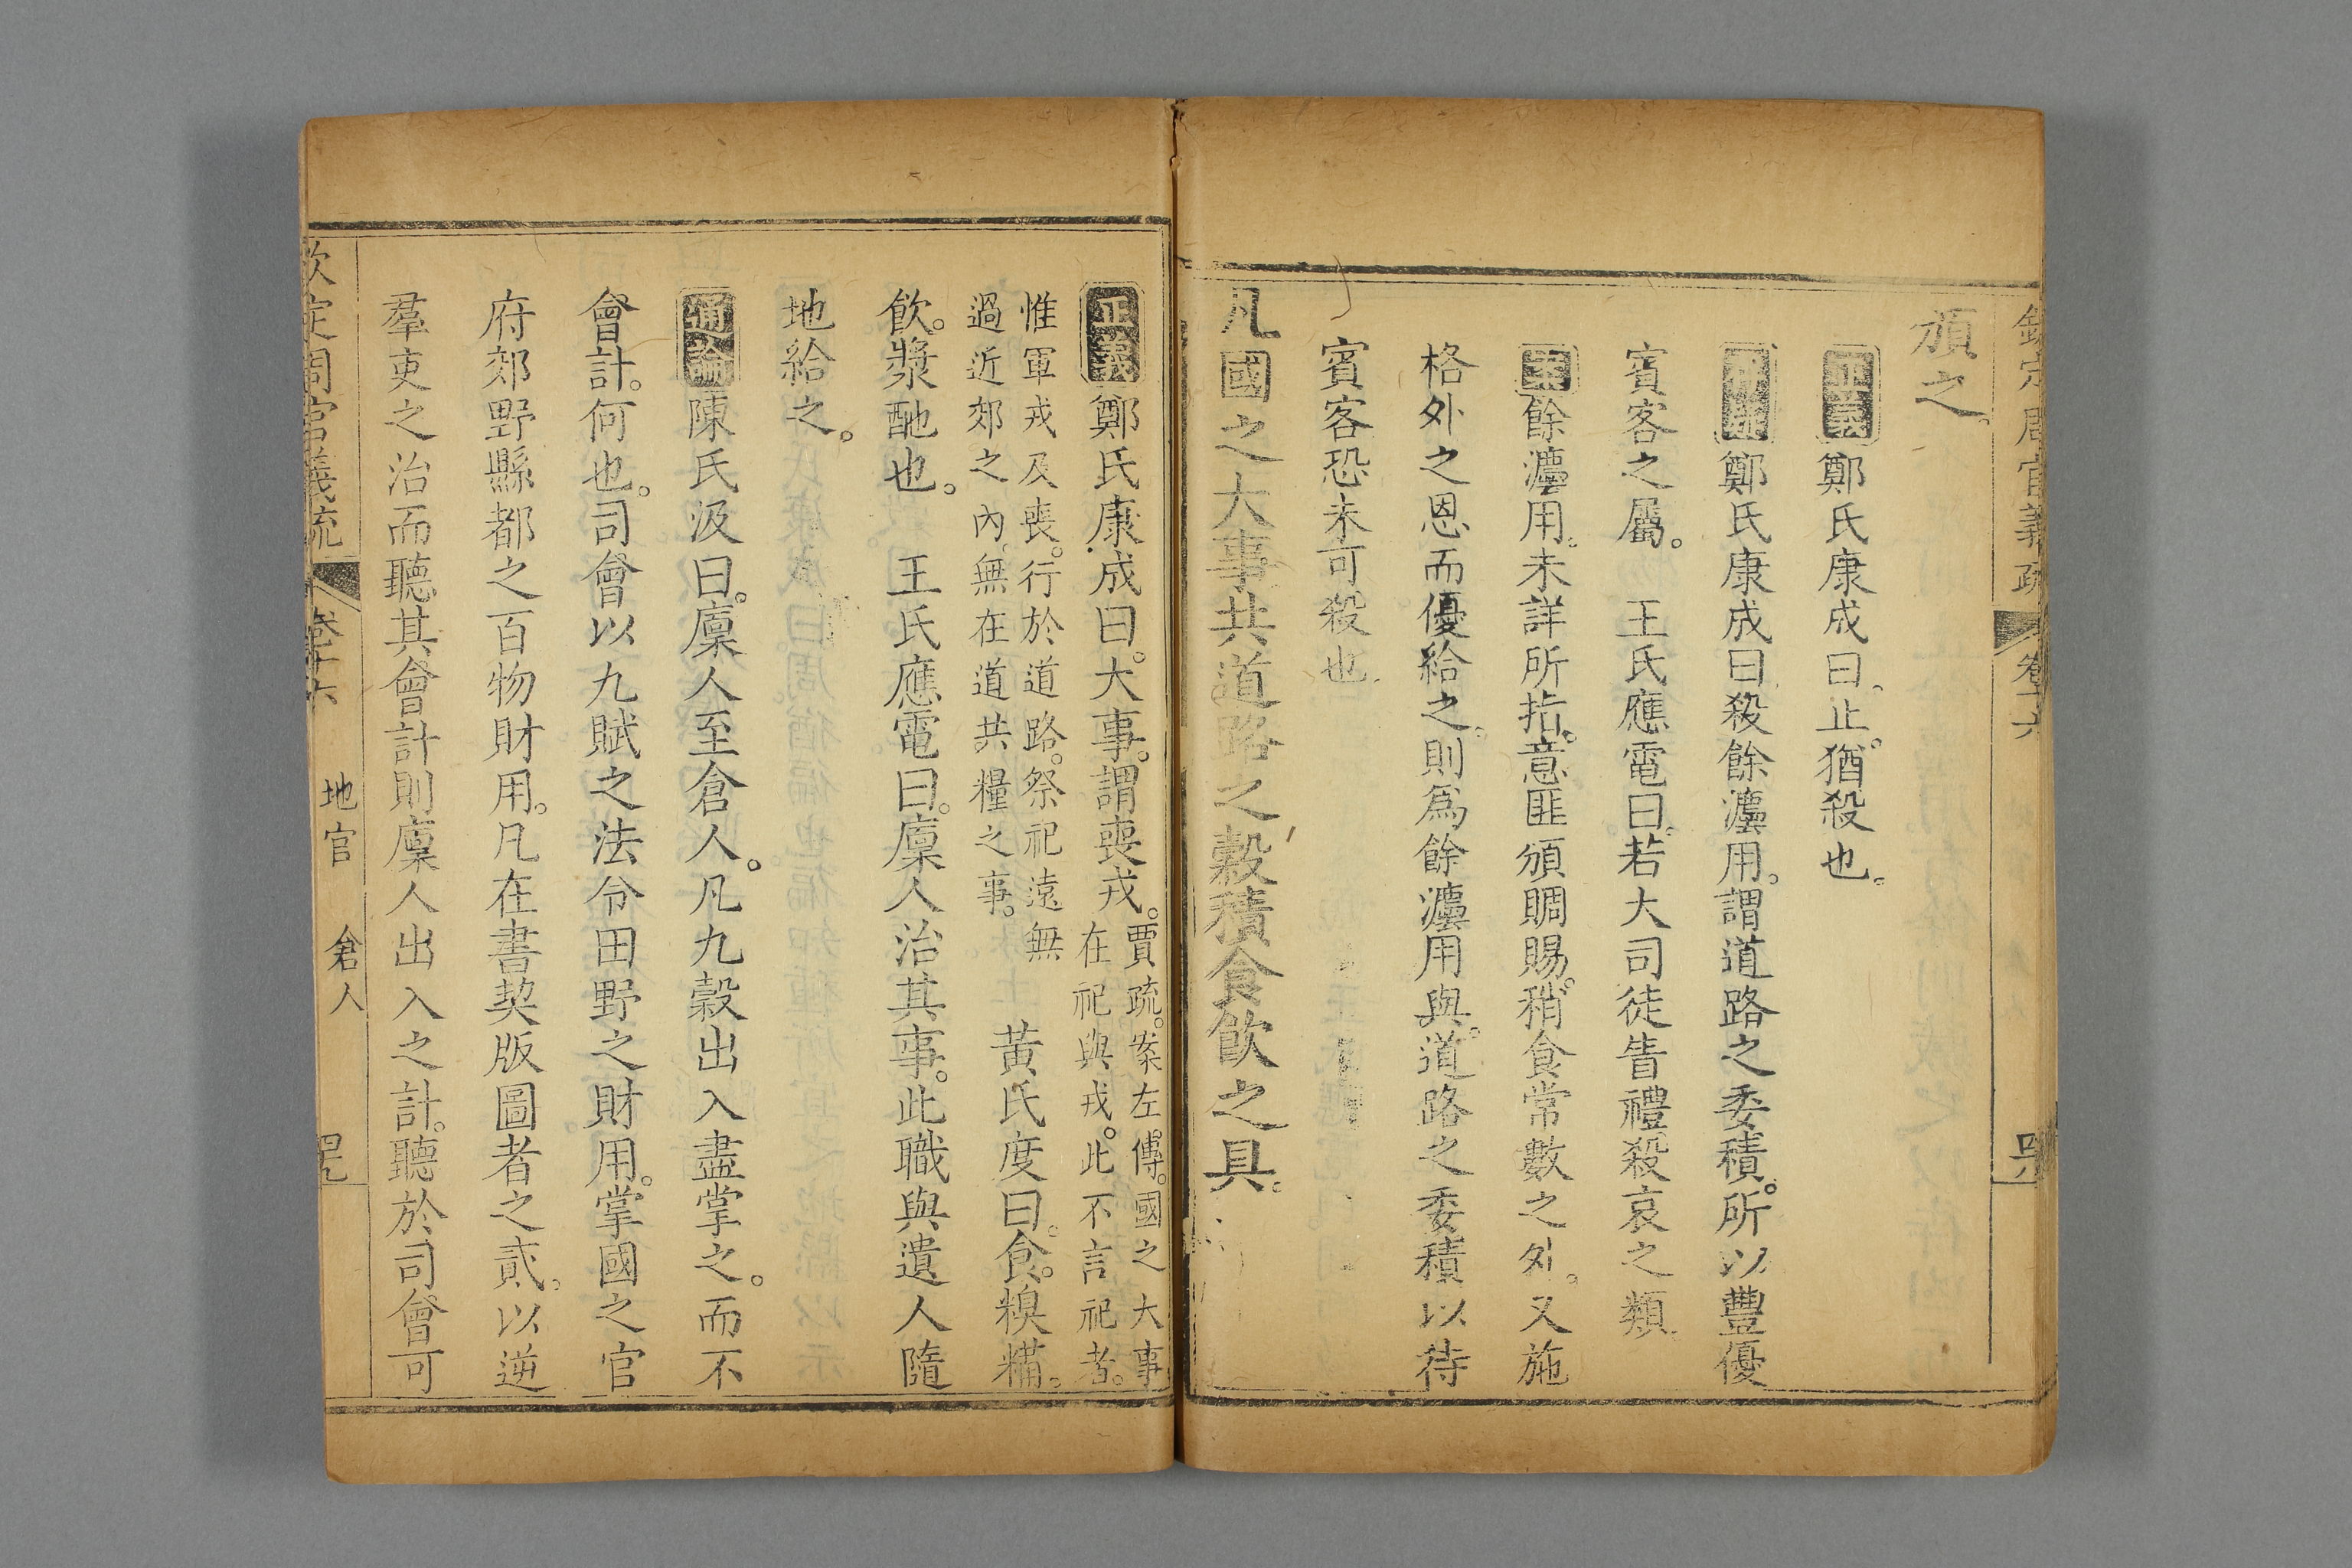 欽定周官義疏 卷十六
頒之。
正義鄭氏康成曰。止。猶殺也。
存疑鄭氏康成曰殺餘灋用。謂道路之委積。所以豐優
賓客之屬。 王氏應電曰。若大司徒眚禮殺哀之類。
案餘灋用。未詳所指。意匪頒賙賜。稍食常數之外。又施
格外之恩而優給之。則爲餘灋用與。道路之委積以待
賓客恐未可殺也
凡國之大事共道路之穀積食飲之具。
正義鄭氏康成曰。大事。謂喪戎。賈疏。案左。傳。國之大事
在祀與戎。此不言祀者。
惟軍戎及喪。行於道路。祭祀遠無
過近郊之內。無在道共糧之事。 黃氏度曰。食。糗糒。
飲。漿酏也。 王氏應電曰。廩人治其事。此職與遺人隨
地給之。
通論陳氏汲曰。廩人至倉人。凡九穀出入盡掌之。而不
會計。何也。司會以九賦之法令田野之財用。掌國之官
府郊野縣都之百物財用。凡在書契版圖者之貳。以逆
羣吏之治而聽其會計則廩人出入之計。聽於司會可
欽定周官義疏 卷十六 地官 倉人